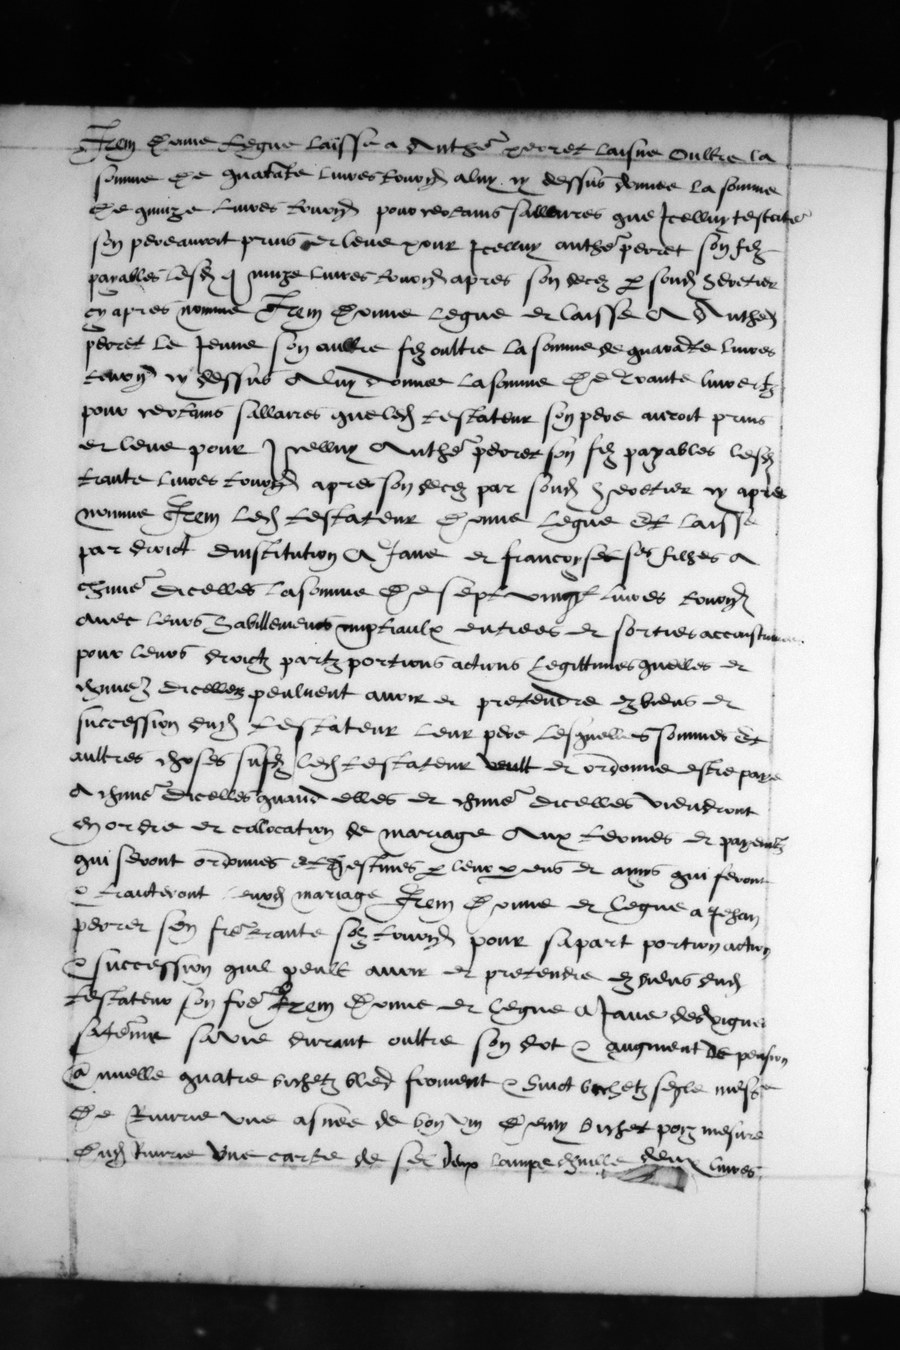 Item donne legue laisse a Anthe perret laisne oultre la
somme de quarate livres tourn a luy cy dessus donnee la somme
de quinze livres tourn pour certains sallaires que Icelluy testate
son pere auroit prins et leve pour Icelluy anthe perret son filz
payables lesd quinze livres tourn apres son deces p sond heretier
cy apres nomme Item donne legue et laisse A Anthe
perret le Jeune son aultre filz oultre la somme de quarate livres
tourn cy dessus A luy donnee la somme de trante livres tz
pour certains sallaires que led testateur son pere auroit prins
et leve pour Icelluy Anthe perret son filz payables lesd
trante livres tourn apres son deces par sond heretier cy apres
nomme Item led testateur donne legue Et laisse
par droict dinstitution A Jane et francoyse ses filhes a
chune dicelles la somme de sept vingt livres tourn
avec leurs habillements nuptiaulx entrees et sorties
pour leurs droictz partz portions actions legittimes quelles et
chune dicelles peulvent avoir et pretendre ez biens et
succession dud testateur leur pere lesquelles sommes Et
aultres choses susd led testateur veult et ordonne estre paye
A chune dicelles quand elles et chune dicelles viendront
en ordre et colocation de mariage Aux termes et payemtz
qui seront ordonnes et destines p leurs parens et amys qui feront
& traicteront leurd mariage Item donne et legue a Jehan
perret son frere trante solz tourn pour sa part portion action
& succession quil peult avoir et pretendre ez biens dud
testateur son frere Item donne et legue a Jane des vignes
sa feme sa vie durant oultre son dot & augment de pension
annuelle quatre bichetz bled froment & huict bichetz segle mesure
de Riverie une asnee de bon vin demy bichet poys mesure
dud Riverie Une carte de sel deux lampe dhuille deux livres